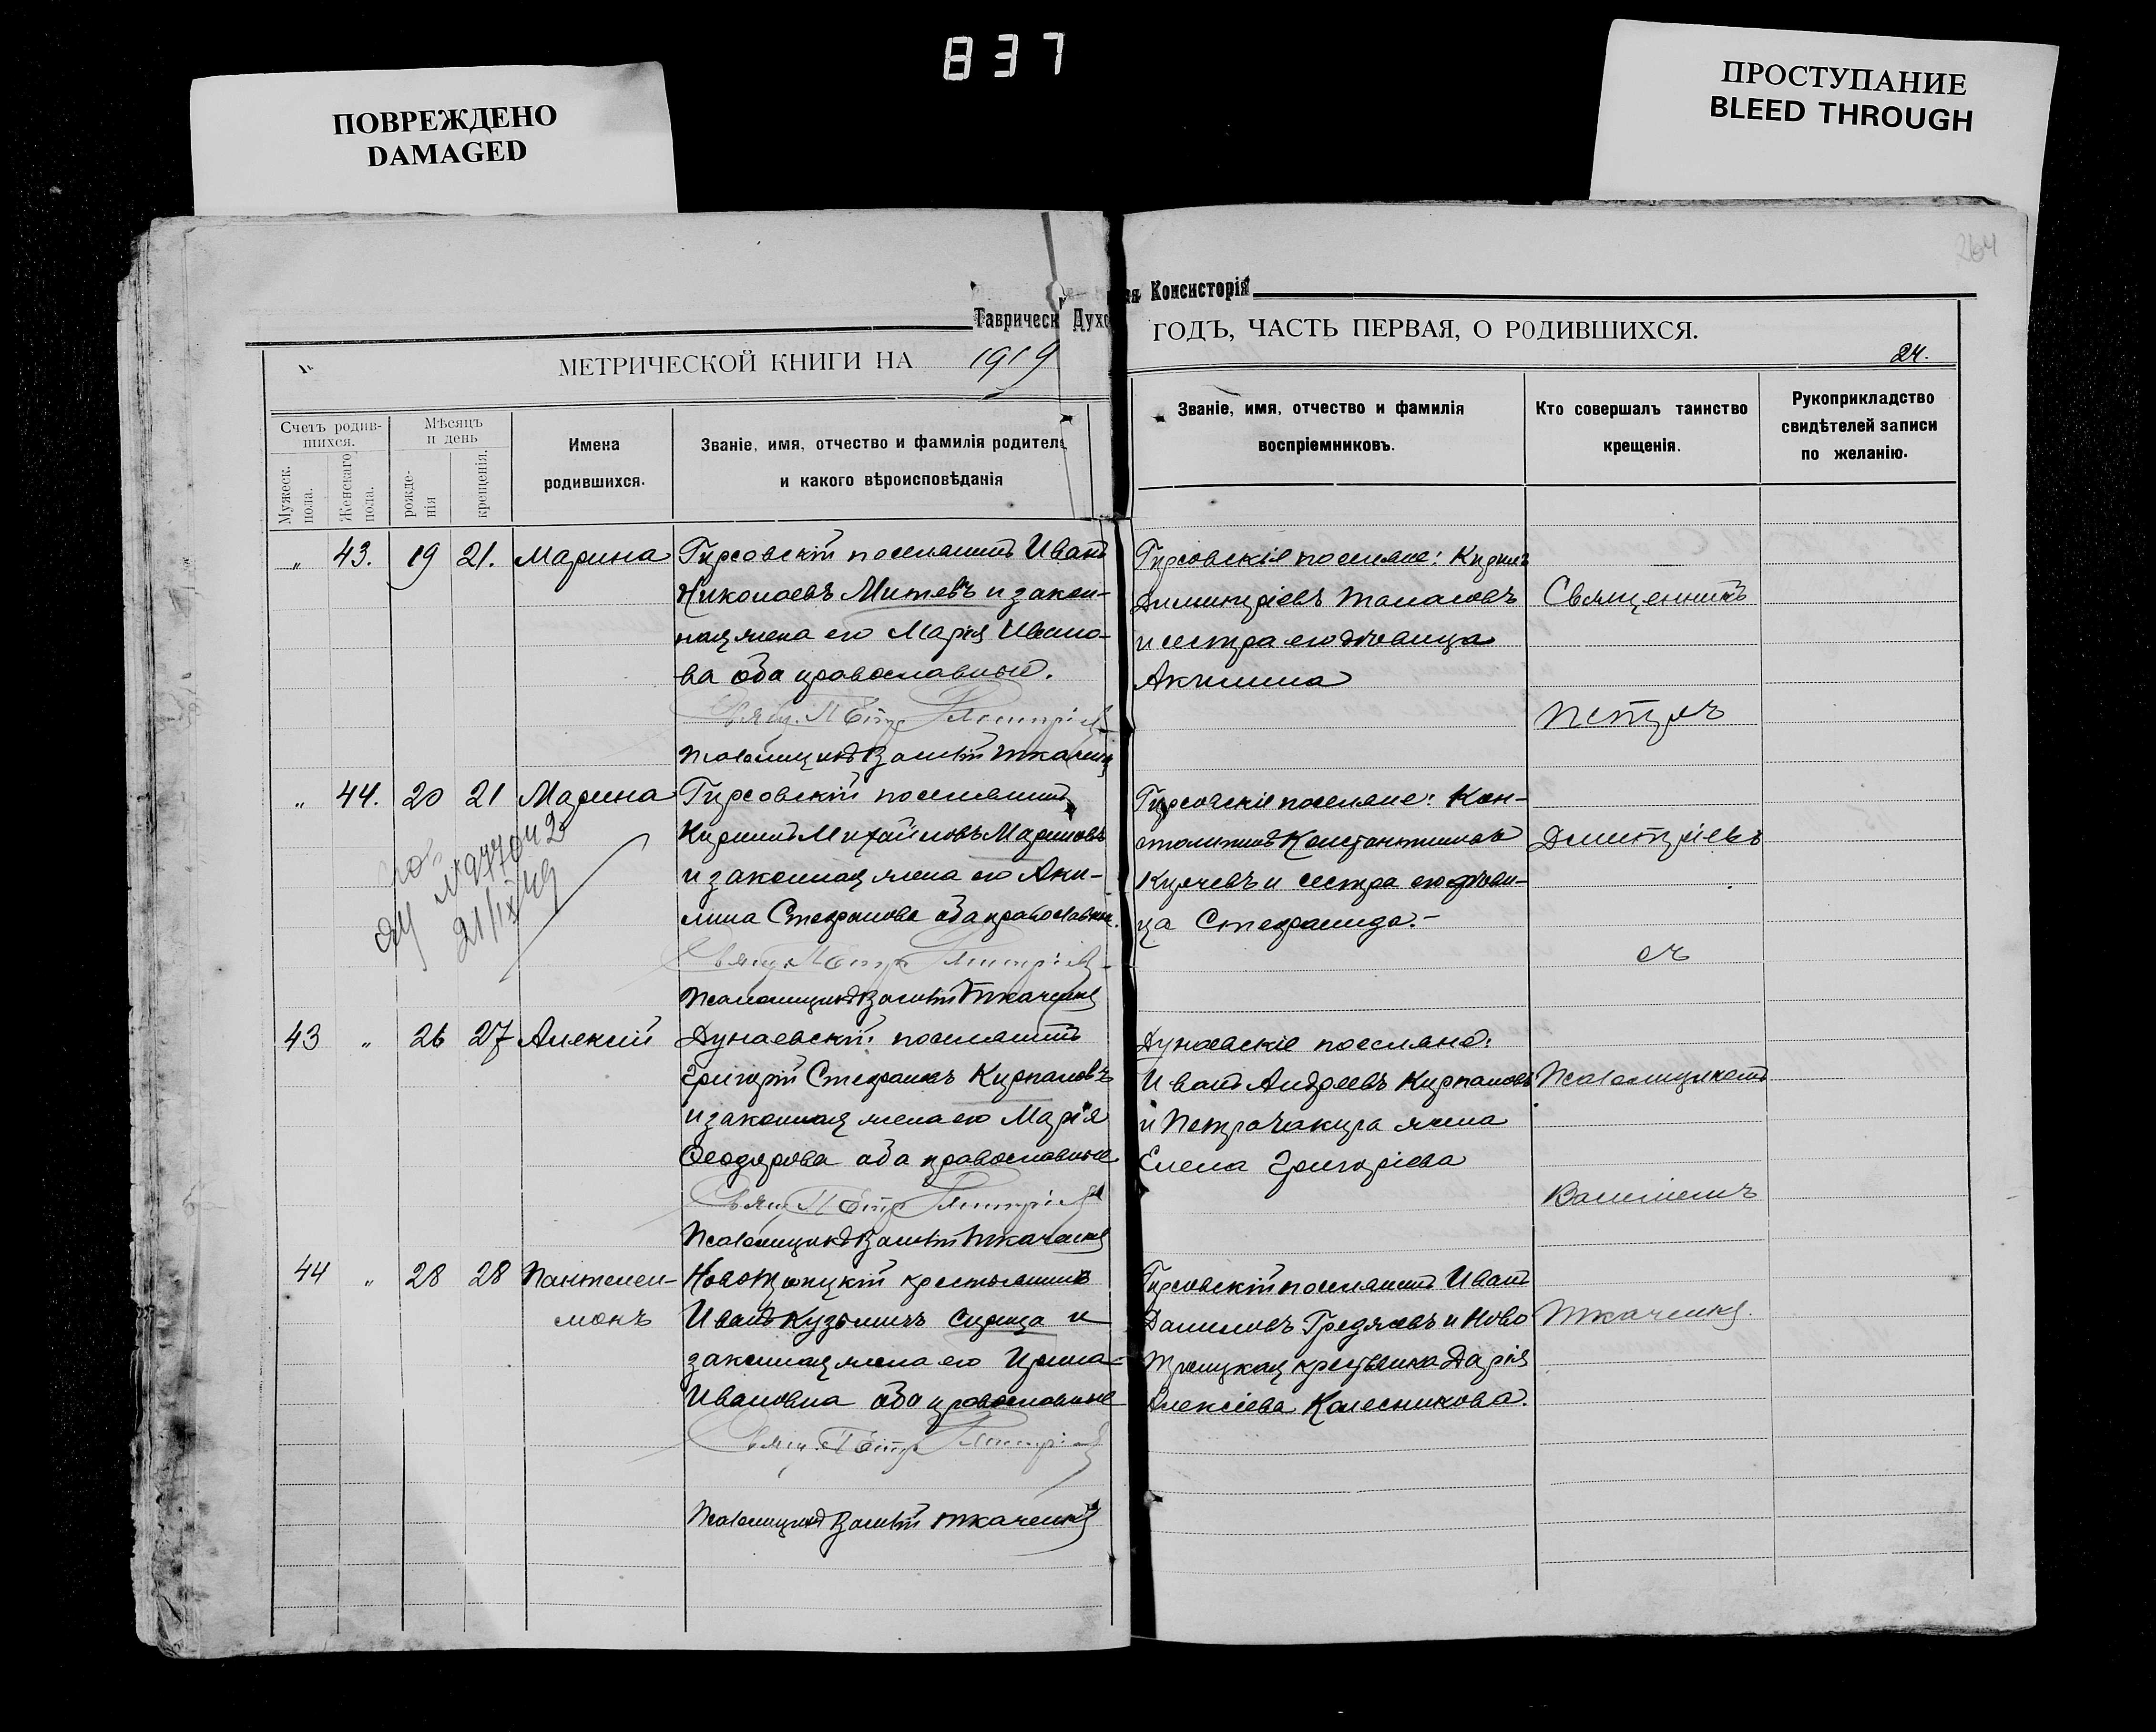 837
ПОВРЕЖДЕНО
DAMAGED
ПРОСТУПАНИЕ
BLEED THROUGH
264
Таврическ Духо
ая Консисторія
МЕТРИЧЕСКОЙ КНИГИ НА 1919
ГОДЪ, ЧАСТЬ ПЕРВАЯ, О РОДИВШИХСЯ.
24.
Счетъ родив-
шихся.
Мужеск.
пола.
Женскаго
пола.
Мѣсяцъ
и день
рожде-
нія
крещенія.
Имена
родившихся.
Званіе, имя, отчество и фамилія родителе
и какого вѣроисповѣданія
Званіе, имя, отчество и фамилія
воспріемниковъ.
Кто совершалъ таинство
крещенія.
Рукоприкладство
свидѣтелей записи
по желанію.
„ 43. 19 21. Марина
Гирсовскій поселянинъ Иванъ
Николаевъ Митевъ и закон-
ная жена его Марія Ивано-
ва оба православные.
Свящ. Петръ Димитріевъ
Псаломщикъ Василій Ткаченко
Гирсовскіе поселяне: Кирилъ
Димитріевъ Танасовъ
и сестра его дѣвица
Акилина
„ 44. 20 21 Марина
Гирсовскій поселянинъ
Кирилъ Михайловъ Мариновъ
и законная жена его Аки-
лина Стефанова оба православные.
Свящ. Петръ Димитріевъ
Псаломщикъ Василій Ткаченко
№ 977042
21/IX 49
Гирсовскіе поселяне: Кон-
стантинъ Константиновъ
Курчевъ и сестра его дѣви-
ца Стефанида.-
43 „ 26 27 Алексій
Дунаевскій поселянинъ
Григорій Стефановъ Кирпановъ
и законная жена его Марія
Ѳеодорова оба православные
Свящ. Петръ Димитріевъ
Псаломщикъ Василій Ткаченко
Дунаевскіе поселяне:
Иванъ Андреевъ Кирпановъ
и Петра Чакира жена
Елена Григоріева
44 „ 28 28 Пантелеи-
монъ
Новотроицкій крестьянинъ
Иванъ Кузьмичъ Сирица и
законная жена его Ирина
Ивановна оба православные
Свящ. Петръ Димитріевъ
Псаломщикъ Василій Ткаченко
Гирсовскій поселянинъ Иванъ
Даниловъ Греджевъ и Ново
троицкая крестьянка Дарія
Алексіева Колесникова.
Священникъ
Петръ
Димитріевъ
съ
Псаломщикомъ
Василіемъ
Ткаченко.